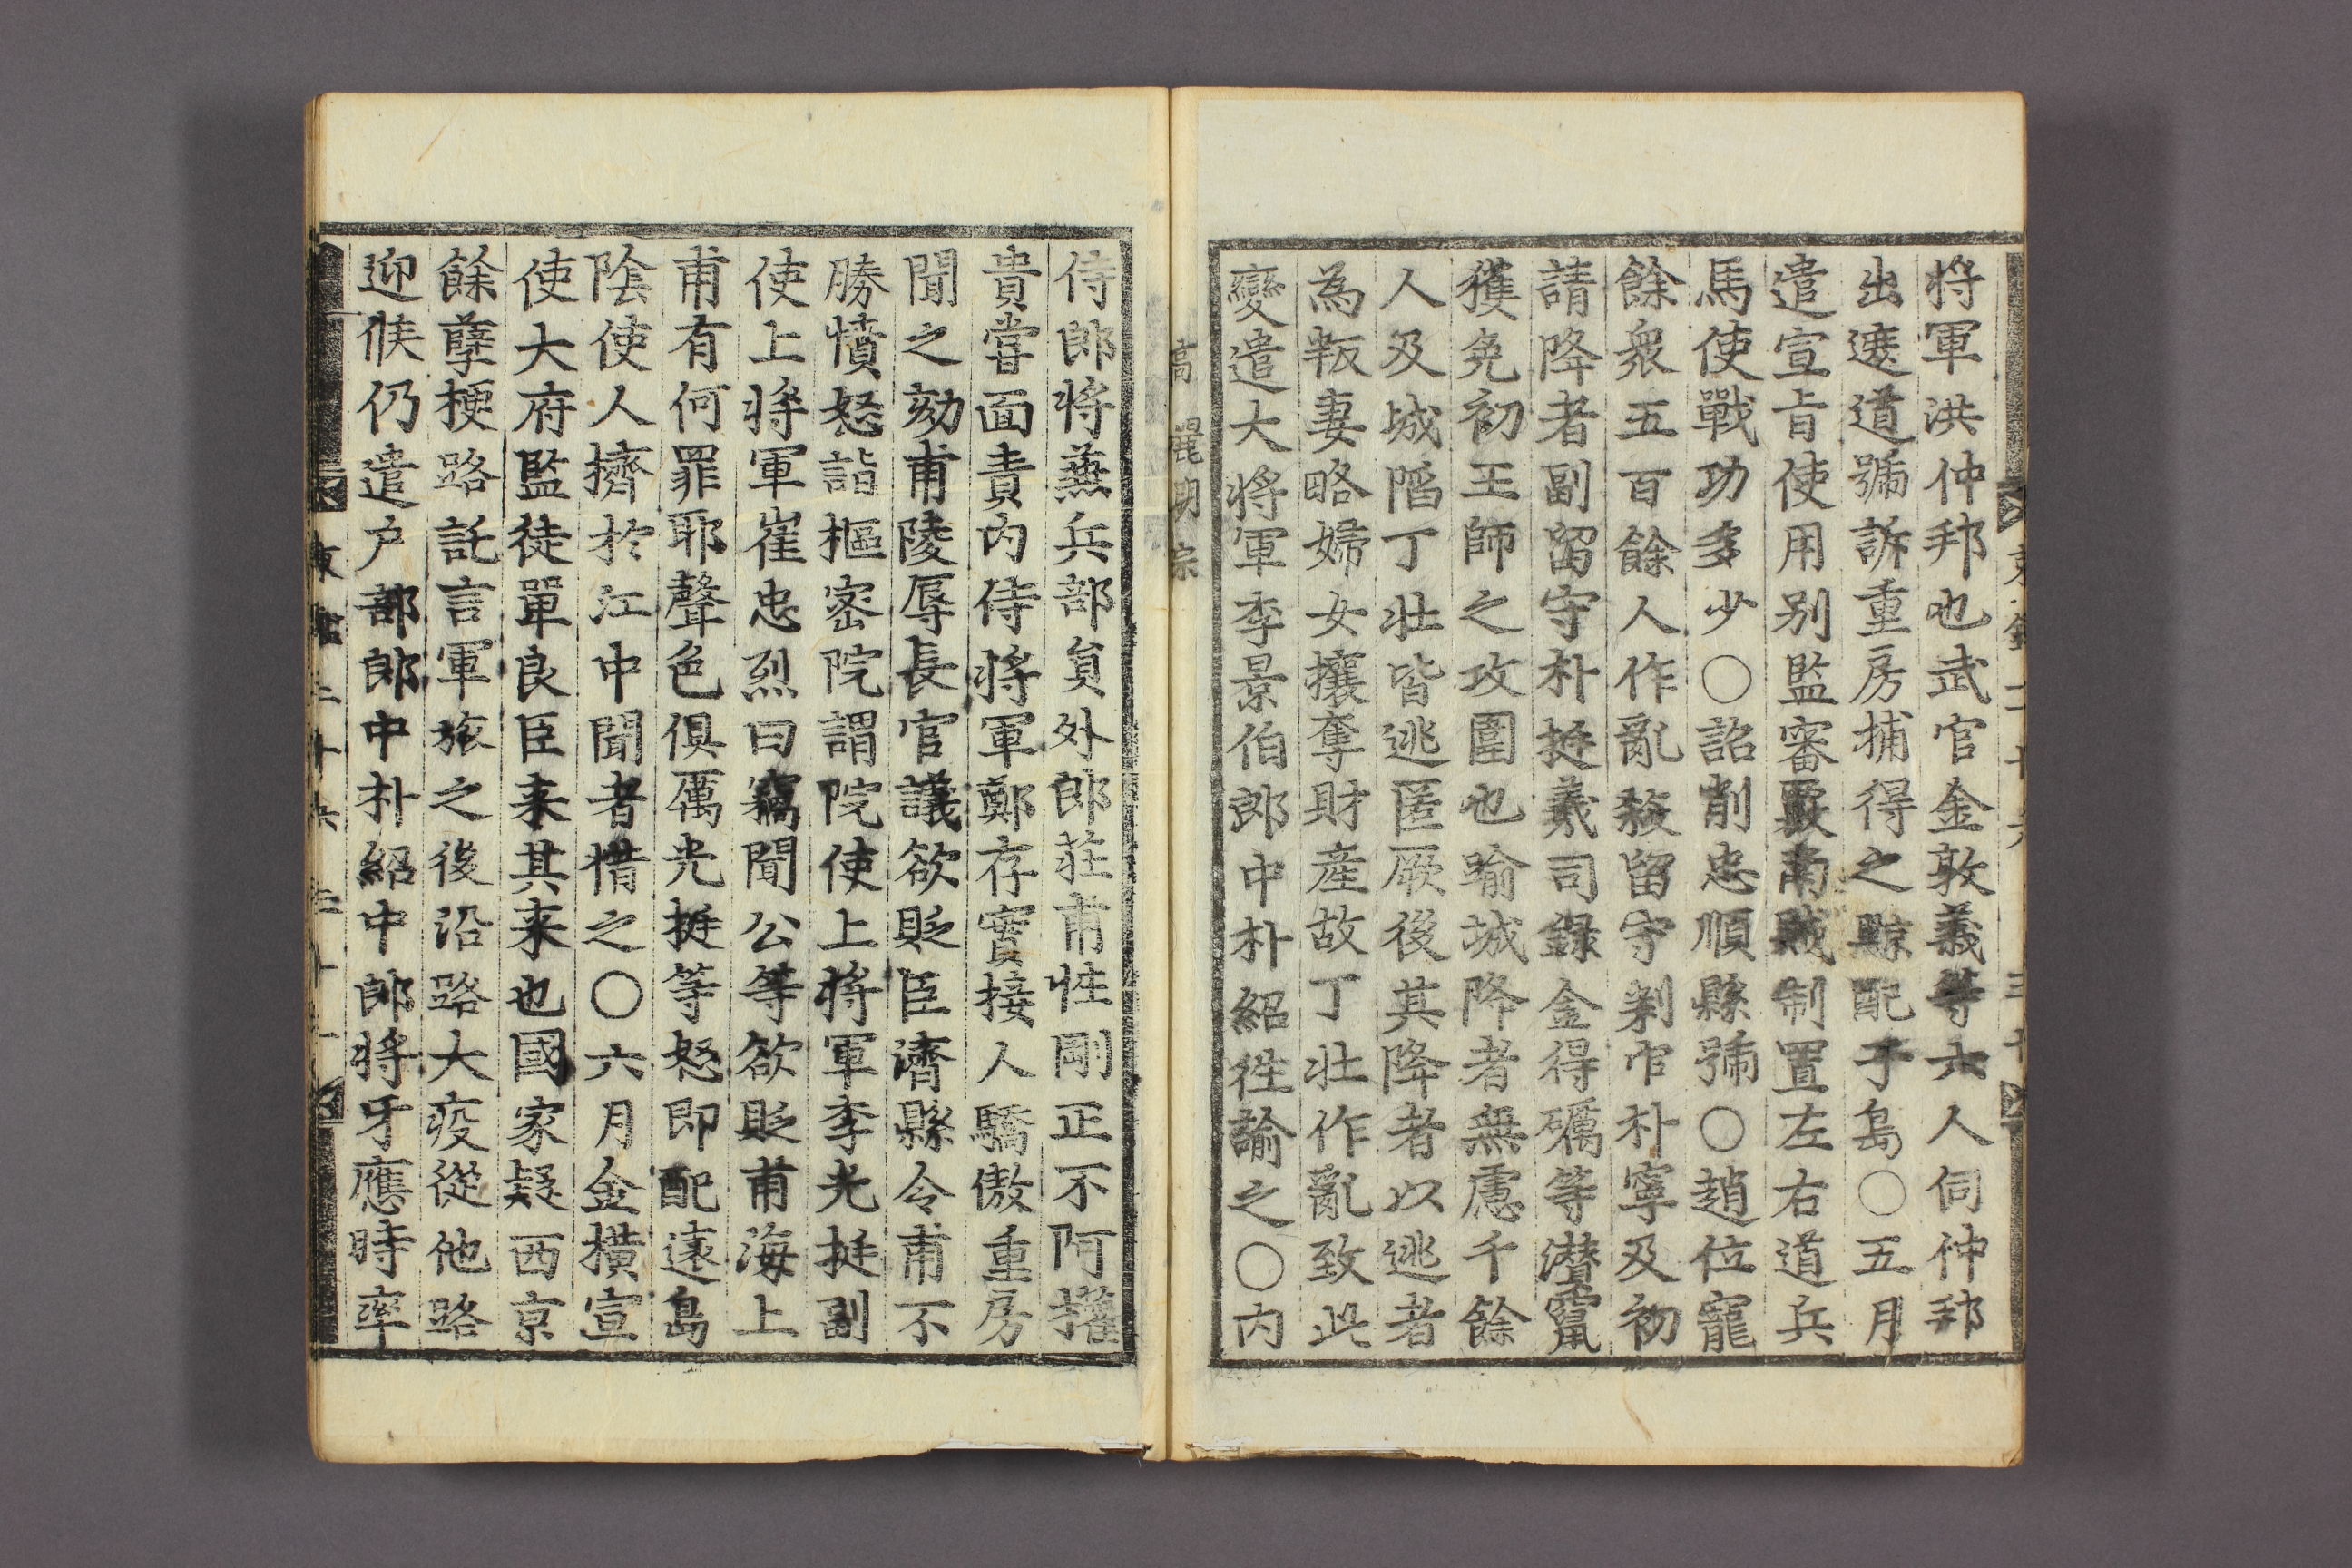 将軍洪仲邦也武官金敦義等六人伺仲邦
出遮道號訴重房捕得之黥配于島○五月
遣宣旨使用别監審覈南賊制置左右道兵
馬使戰功多少○詔削忠順縣號○趙位寵
餘衆五百餘人作亂殺留守判官朴寧及初
請降者副留守朴挺羲司錄金得礪等潜竄
獲免初王師之攻圍也踰城降者無慮千餘
人及城陷丁壯皆逃匿厥後其降者以逃者
為叛妻略婦女攘奪財産故丁壯作亂致此
變遣大将軍李景伯郎中朴紹徃諭之○内
高麗明宗
侍郎将蕪兵部員外郎莊甫性剛正不阿權
貴嘗面責内侍将軍鄭存實接人驕傲重房
聞之劾甫陵辱長官議欲貶臣濟縣令甫不
勝憤怒詣樞密院謂院使上将軍李光挺副
使上将軍崔忠烈曰竊聞公等欲貶甫海上
甫有何罪耶聲色俱厲光挺等怒即配遠島
陰使人擠於江中聞者惜之○六月金橫宣
使大府監徒單良臣来其来也國家疑西京
餘孽梗路託言軍旅之後沿路大疫從他路
迎候仍遣户部郎中朴紹中郎将牙應時率